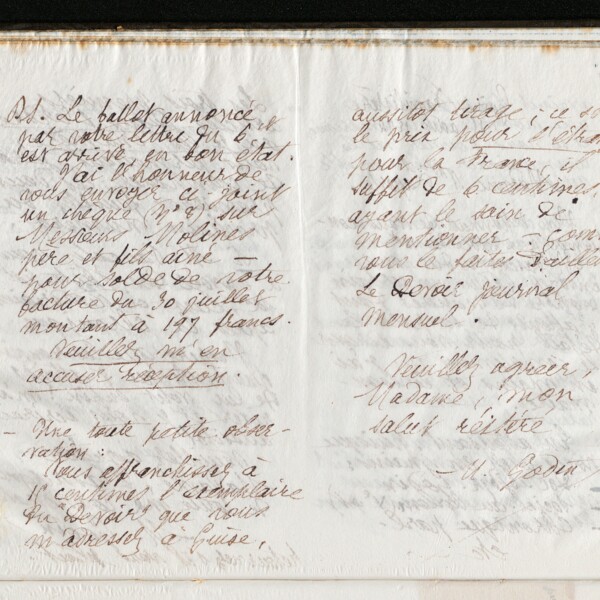 P.S. Le ballot annoncé
par votre lettre du 6 ct
est arrivé en bon état.
J'ai l'honneur de
vous envoyer ci-joint
un chèque (N° 8) sur
Messieurs Molines
père et fils aîné —
pour solde de votre
facture du 30 juillet
montant à 197 francs.
Veuillez m'en
accuser réception.
— Une toute petite obser-
vation :
Vous affranchissez à
15 centimes l'exemplaire
du "Devoir" que vous
m'adressez à Guise,
aussitôt tirage ; ce
le prix pour l'étran
pour la France, il
suffit de 6 centimes
ayant le soin de
mentionner - com
vous le faites d'aille
Le Devoir journal
mensuel.
Veuillez agréer,
Madame, mon
salut réitéré
Godin